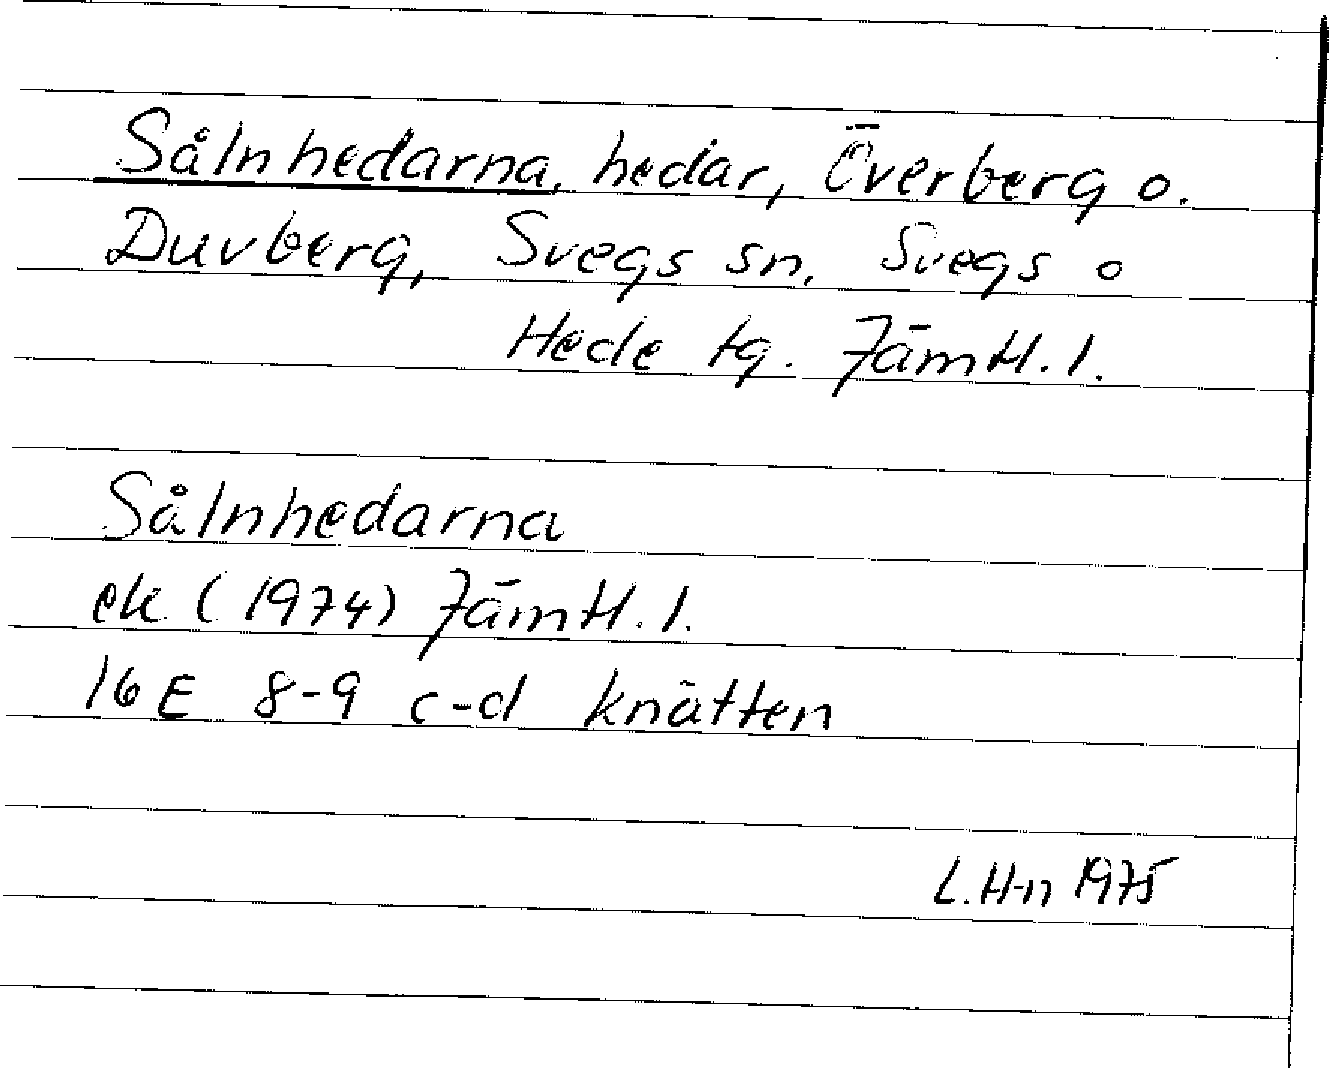 Sålnhedarna, hedar, Överberg o.
Duvberg, Svegs sn. Svegs o
Hede tg. Jämtl. l.
Sålnhedarna
ek (1974) Jämtl. l.
16 E 8-9 c-d knätten
L. H-n 1975